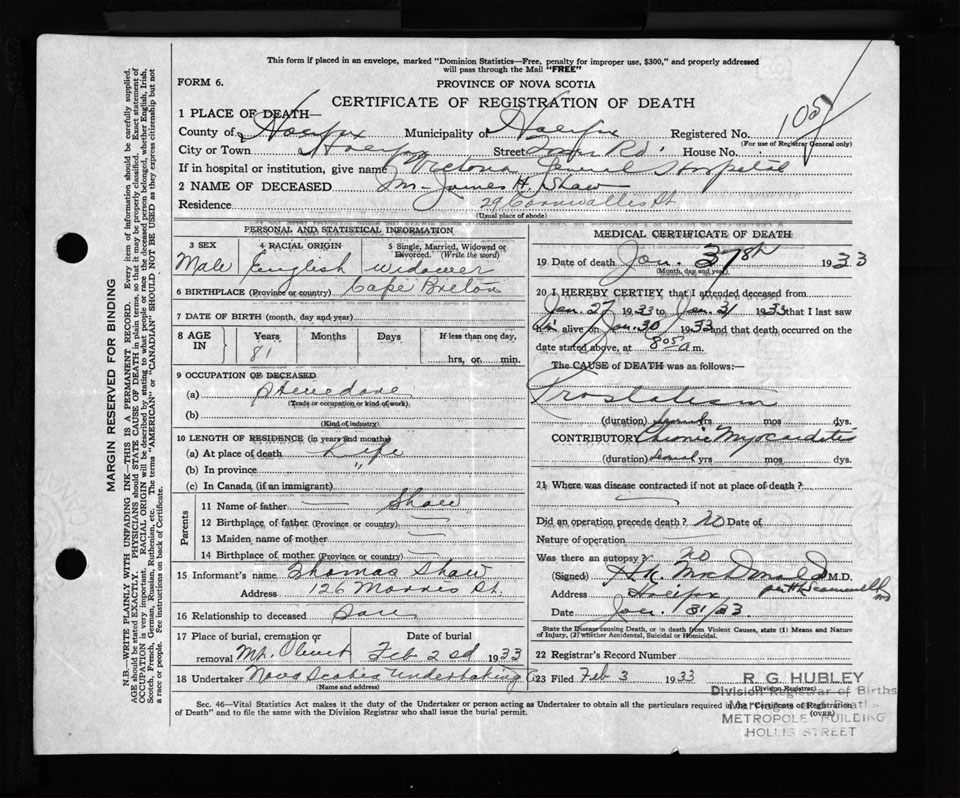 This form if placed in an envelope, marked "Dominion Statistics—Free, penalty for improper use, $300," and properly addressed
will pass through the Mail "FREE"
FORM 6.
PROVINCE OF NOVA SCOTIA
CERTIFICATE OF REGISTRATION OF DEATH
1 PLACE OF DEATH—
County of Halifax Municipality of Halifax Registered No.
(For use of Registrar General only)
City or Town Halifax Street Rd. House No.
If in hospital or institution, give name Victoria Genrl Hospital
2 NAME OF DECEASED Mr James H. Shaw
Residence 29 Cornwallis St
(Usual place of abode)
PERSONAL AND STATISTICAL INFORMATION
3 SEX 4 RACIAL ORIGIN 5 Single, Married, Widowed or Divorced. (Write the word)
Male English widower
6 BIRTHPLACE (Province or country) Cape Breton
7 DATE OF BIRTH (month, day and year)
8 AGE IN Years Months Days If less than one day,
81 hrs, or min.
9 OCCUPATION OF DECEASED
(a)
(Trade or occupation or kind of work)
(b)
(Kind of industry)
10 LENGTH OF RESIDENCE (in years and months)
(a) At place of death Life
(b) In province "
(c) In Canada (if an immigrant)
Parents
11 Name of father — Shaw
12 Birthplace of father (Province or country)
13 Maiden name of mother
14 Birthplace of mother (Province or country)
15 Informant's name Thomas Shaw
Address 126 Morris St.
16 Relationship to deceased Son
17 Place of burial, cremation or removal Date of burial
Mt. Olivet Feb 2nd 1933
18 Undertaker Nova Scotia Undertaking Co
(Name and address)
MEDICAL CERTIFICATE OF DEATH
19 Date of death Jan. 1933
(Month, day and year)
20 I HEREBY CERTIFY that I attended deceased from
Jan. 27 1933 to Jan. 31 1933 that I last saw
him alive on Jan. 30 1933 and that death occurred on
date stated above, at 8 05 a m.
The CAUSE of DEATH was as follows:—
Prostatism
(duration) yrs mos dys.
CONTRIBUTORY Chronic Myocarditis
(duration) yrs mos dys.
21 Where was disease contracted if not at place of death?
Did an operation precede death? no Date of
Nature of operation
Was there an autopsy? no
(Signed) H.K. MacDonald M.D.
Address Halifax
Date Jan. 31/33
State the Disease causing Death, or in death from Violent Causes, state (1) Means and Nature of Injury, (2) whether Accidental, Suicidal or Homicidal.
22 Registrar's Record Number
23 Filed Feb 3 1933
(Division Registrar)
R. G. HUBLEY
Division Registrar of Births
Marriages and Deaths
METROPOLE BUILDING
HOLLIS STREET
Sec. 46—Vital Statistics Act makes it the duty of the Undertaker or person acting as Undertaker to obtain all the particulars required in the "Certificate of Registration
of Death" and to file the same with the Division Registrar who shall issue the burial permit.
(OVER)
MARGIN RESERVED FOR BINDING
N.B.—WRITE PLAINLY WITH UNFADING INK—THIS IS A PERMANENT RECORD. Every item of information should be carefully supplied.
AGE should be stated EXACTLY. PHYSICIANS should STATE CAUSE OF DEATH in plain terms, so that it may be properly classified. Exact statement of
OCCUPATION is very important. RACIAL ORIGIN will be described by stating to what people or race the deceased person belonged, whether English, Irish,
Scotch, French, German, Russian, Ruthenian, etc. The terms "AMERICAN" or "CANADIAN" SHOULD NOT BE USED as they express citizenship but not
a race or people. See instructions on back of Certificate.